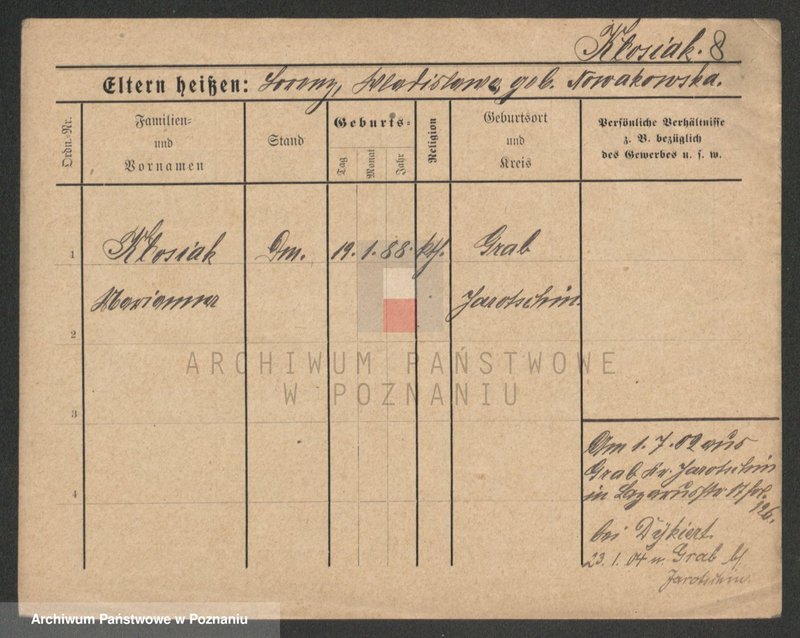 Kłosiak. 8
Eltern heißen: Lorenz, Wladislawa, geb. Nowakowska.
Ordn.-Nr.
Familien-
und
Vornamen
Stand
Geburts-
Tag
Monat
Jahr
Religion
Geburtsort
und
Kreis
Persönliche Verhältnisse
z. B. bezüglich
des Gewerbes u. s. w.
1 Kłosiak Dm. 19. 1. 88. kth. Grab
Marianna Jarotschin.
2
ARCHIWUM PAŃSTWOWE
W POZNANIU
3
4
Am 1. 7. 02 aus
Grab Kr. Jarotschin
in Lazarusstr. 17 fol.
126.
bei Dykiert.
23. 1. 04 n. Grab
Jarotschin
Archiwum Państwowe w Poznaniu